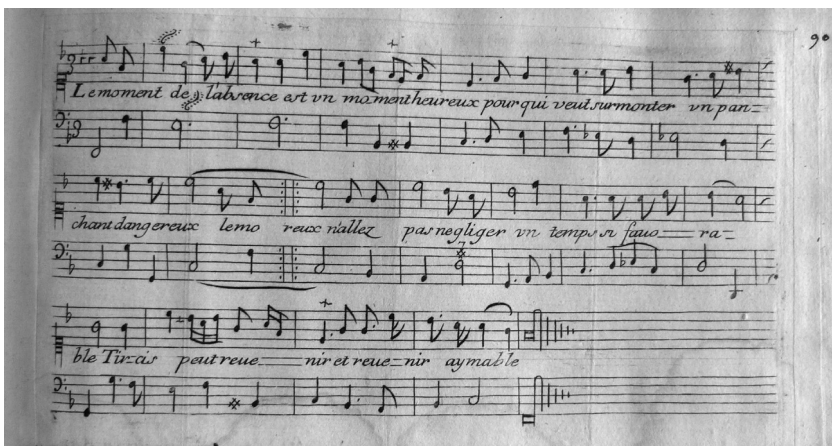 90
Le moment de l'absence est vn moment heureux pour qui veut surmonter vn pan=
chant dangereux le mo reux n'allez pas negliger vn temps si fauo ra=
ble Tir=cis peut reue nir et reue=nir aymable